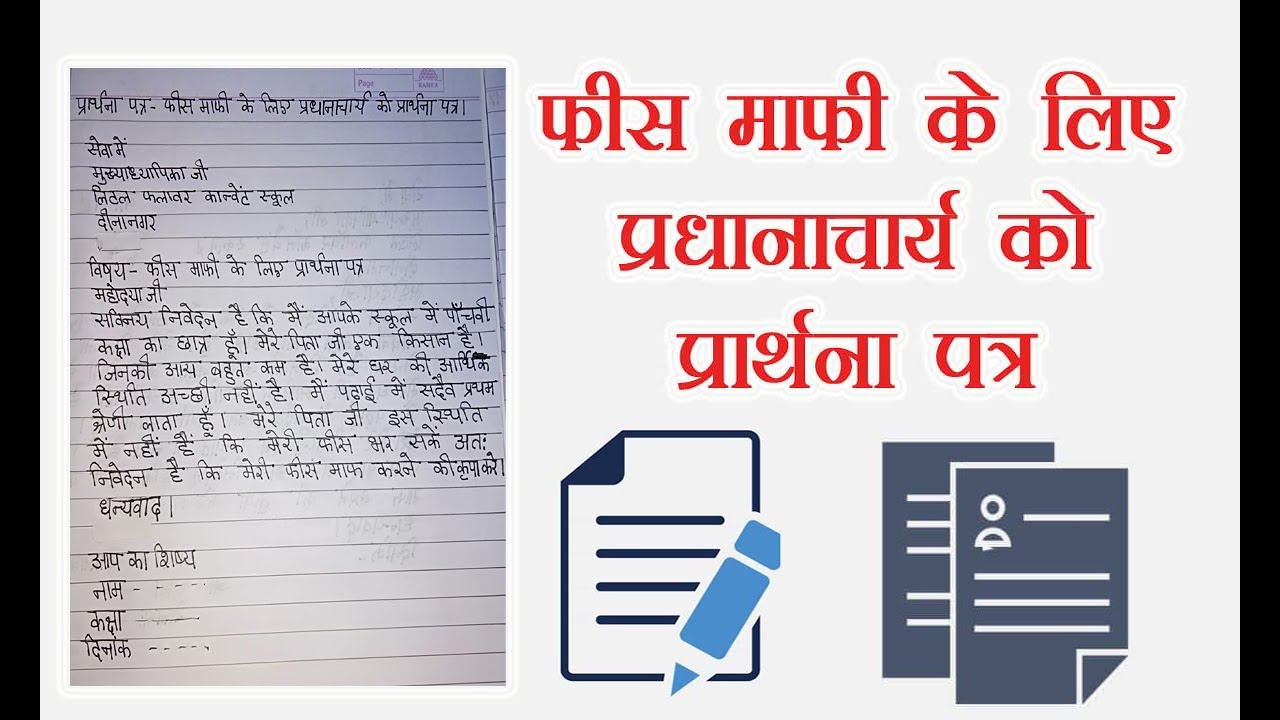 Page
RANKA
प्रार्थना पत्र- फीस माफी के लिए प्रधानाचार्य को प्रार्थना पत्र।
सेवा में
मुख्याध्यापिका जी
लिटल फलावर कान्वेंट स्कूल
दीनानगर
विषय- फीस माफी के लिए प्रार्थना पत्र
महोदया जी
सविनय निवेदन है कि मैं आपके स्कूल में पाँचवी
कक्षा का छात्र हूँ। मेरे पिता जी एक किसान है।
जिनकी आय बहुत कम है। मेरे घर की आर्थिक
स्थिति अच्छी नहीं है। मैं पढ़ाई में सदैव प्रथम
श्रेणी लाता हूँ। मेरे पिता जी इस स्थिति
में नहीं है कि मेरी फीस भर सकें अतः
निवेदन है कि मेरी फीस माफ करने की कृपा करे।
धन्यवाद।
आप का शिष्य
नाम - - - - -
कक्षा
दिनांक - - - - -
फीस माफी के लिए
प्रधानाचार्य को
प्रार्थना पत्र